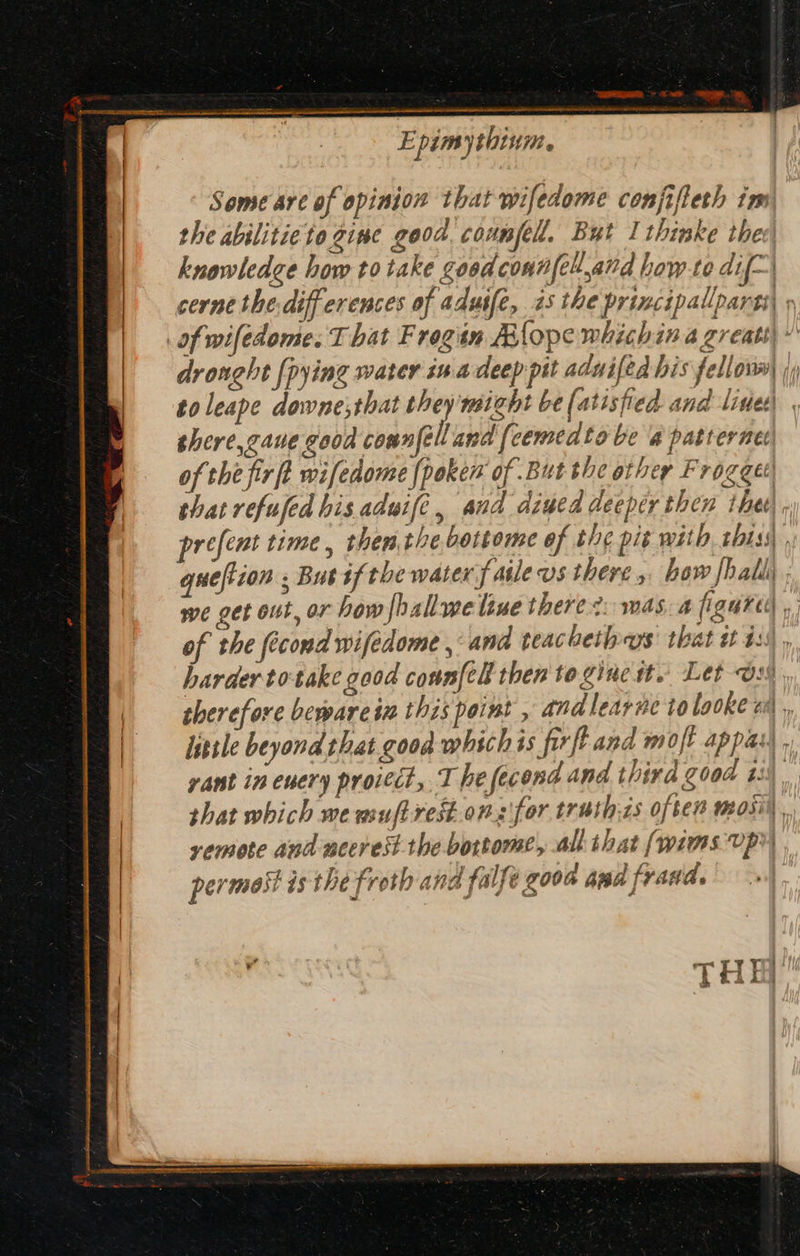 Epimythium.
Some are of opinion that wiſedome conſiſteth in
the abilitie to giue good counſell. But I thinke the
knowledge how to take good counſell, and how to diſ-
cerne the differences of aduiſe, is the principall part
of wiſedome. That Frog in Æſope which in a great
drought ſpying water in a deep pit aduiſed his fellow
to leape downe, that they might be ſatisfied and liue
there, gaue good counſell and ſeemed to be a patterne
of the firſt wiſedome ſpoken of. But the other Frogge
that refuſed his aduiſe, and diued deeper then the
preſent time, then the bottome of the pit with this
queſtion; But if the water faile vs there, how ſhall
we get out, or how ſhall we liue there? was a figure
of the ſecond wiſedome, and teacheth vs that it is
harder to take good counſell then to giue it. Let vs
therefore beware in this point, and learne to looke a
little beyond that good which is firſt and moſt appa-
rant in euery proiect, The ſecond and third good is
that which we muſt rest on: for truth is often most
remote and neerest the bottome, all that ſwims vp-
permost is the froth and falſe good and fraud.
THE